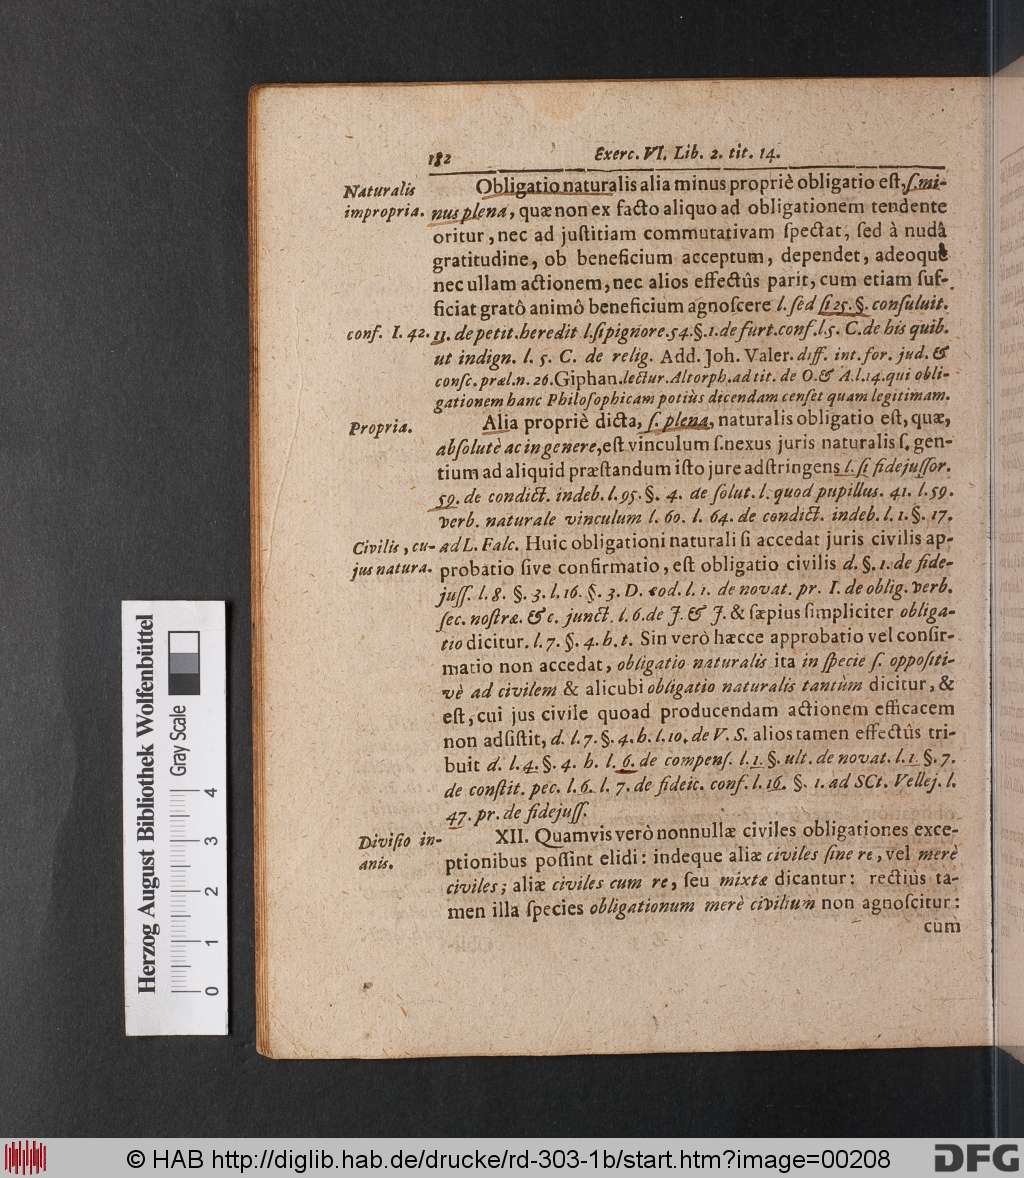 182 Exerc. VI. Lib. 2. tit. 14.
Naturalis
impropria.
Obligatio naturalis alia minus propriè obligatio eſt, ſ. mi-
nus plena, quæ non ex facto aliquo ad obligationem tendente
oritur, nec ad juſtitiam commutativam ſpectat, ſed à nudâ
gratitudine, ob beneficium acceptum, dependet, adeoque
nec ullam actionem, nec alios effectûs parit, cum etiam ſuf-
ficiat gratô animô beneficium agnoſcere l. ſed ſi 25. §. conſuluit.
conf. I. 42. 11. de petit. heredit l. ſi pignore. 54. §. 1. de furt. conf. l. 5. C. de his quib.
ut indign. l. 5. C. de relig. Add. Joh. Valer. diff. int. for. jud. &
conſc. præl. n. 26. Giphan. lectur. Altorph. ad tit. de O. & A. l. 14. qui obli-
gationem hanc Philoſophicam potiùs dicendam cenſet quam legitimam.
Propria.
Alia propriè dicta, ſ. plena, naturalis obligatio eſt, quæ,
abſolutè ac in genere, eſt vinculum ſ. nexus juris naturalis ſ. gen-
tium ad aliquid præſtandum iſto jure adſtringens l. ſi fidejuſſor.
59. de condict. indeb. l. 95. §. 4. de ſolut. l. quod pupillus. 41. l. 59.
verb. naturale vinculum l. 60. l. 64. de condict. indeb. l. 1. §. 17.
Civilis, cu-
jus natura.
ad L. Falc. Huic obligationi naturali ſi accedat juris civilis ap-
probatio ſive confirmatio, eſt obligatio civilis d. §. 1. de fide-
juſſ. l. 8. §. 3. l. 16. §. 3. D. eod. l. 1. de novat. pr. I. de oblig. verb.
ſec. noſtræ. & c. junct. l. 6. de J. & J. & ſæpius ſimpliciter obliga-
tio dicitur. l. 7. §. 4. h. t. Sin verò hæcce approbatio vel confir-
matio non accedat, obligatio naturalis ita in ſpecie ſ. oppoſiti-
vè ad civilem & alicubi obligatio naturalis tantùm dicitur, &
eſt, cui jus civile quoad producendam actionem efficacem
non adſiſtit, d. l. 7. §. 4. h. l. 10. de V. S. alios tamen effectûs tri-
buit d. l. 4. §. 4. h. l. 6. de compenſ. l. 1. §. ult. de novat. l. 1. §. 7.
de conſtit. pec. l. 6. l. 7. de fideic. conf. l. 16. §. 1. ad SCt. Vellej. l.
47. pr. de fidejuſſ.
Diviſio in-
anis.
XII. Quamvis verò nonnullæ civiles obligationes exce-
ptionibus poſſint elidi: indeque aliæ civiles ſine re, vel merè
civiles; aliæ civiles cum re, ſeu mixtæ dicantur: rectiùs ta-
men illa ſpecies obligationum merè civilium non agnoſcitur:
cum
Herzog August Bibliothek Wolfenbüttel
Gray Scale
0 1 2 3 4
© HAB http://diglib.hab.de/drucke/rd-303-1b/start.htm?image=00208
DFG